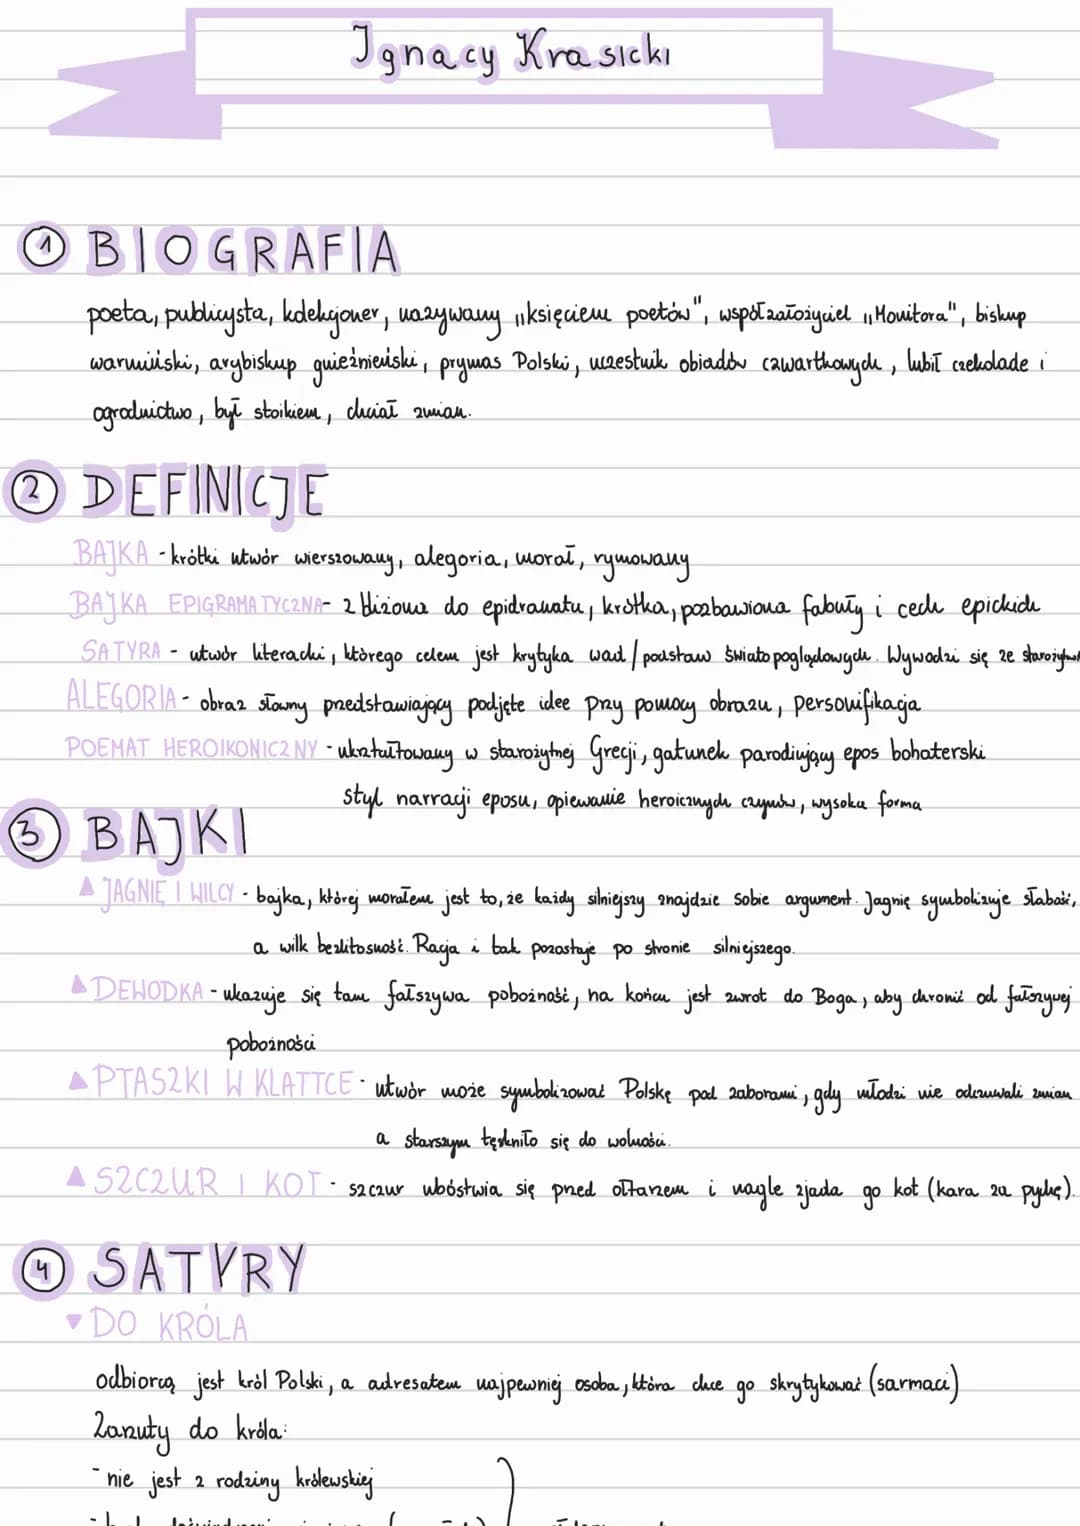 Ignacy Krasicki
1 BIOGRAFIA
poeta, publicysta, kolekcjoner, nazywany „księciem poetów", współzałożyciel „Monitora", biskup
warmiński, arybiskup gnieźnieński, prymas Polski, uczestnik obiadów czwartkowych, lubił czekolade i
ogrodnictwo, był stoikiem, chciał zmian.
2 DEFINICJE
BAJKA - krótki utwór wierszowany, alegoria, morał, rymowany
BAJKA EPIGRAMATYCZNA - zbliżona do epidramatu, krótka, pozbawiona fabuły i cech epickich
SATYRA - utwór literacki, którego celem jest krytyka wad / podstaw światopoglądowych. Wywodzi się ze
ALEGORIA - obraz słowny przedstawiający podjęte idee przy pomocy obrazu, personifikacja
POEMAT HEROIKONICZNY - ukształtowany w starożytnej Grecji, gatunek parodiujący epos bohaterski
styl narracji eposu, opiewanie heroicznych czynów, wysoka forma
3 BAJKI
▲ JAGNIĘ I WILCY - bajka, której morałem jest to, że każdy silniejszy znajdzie sobie argument. Jagnię symbolizuje słabość,
a wilk bezlitosność. Racja i tak pozostaje po stronie silniejszego.
▲ DEWODKA - ukazuje się tam fałszywa pobożność, na końcu jest zwrot do Boga, aby chronić od fałszywej
pobożności
▲ PTASZKI W KLATTCE - utwór może symbolizować Polskę pod zaborami, gdy młodzi nie odczuwali zmian
a starszym tęskniło się do wolności.
▲ SZCZUR I KOT - szczur ubóstwia się przed ołtarzem i nagle zjada go kot (kara za pychę).
4 SATYRY
▼ DO KRÓLA
odbiorcą jest król Polski, a adresatem najpewniej osoba, która chce go skrytykować (sarmaci)
Zarzuty do króla:
- nie jest z rodziny królewskiej